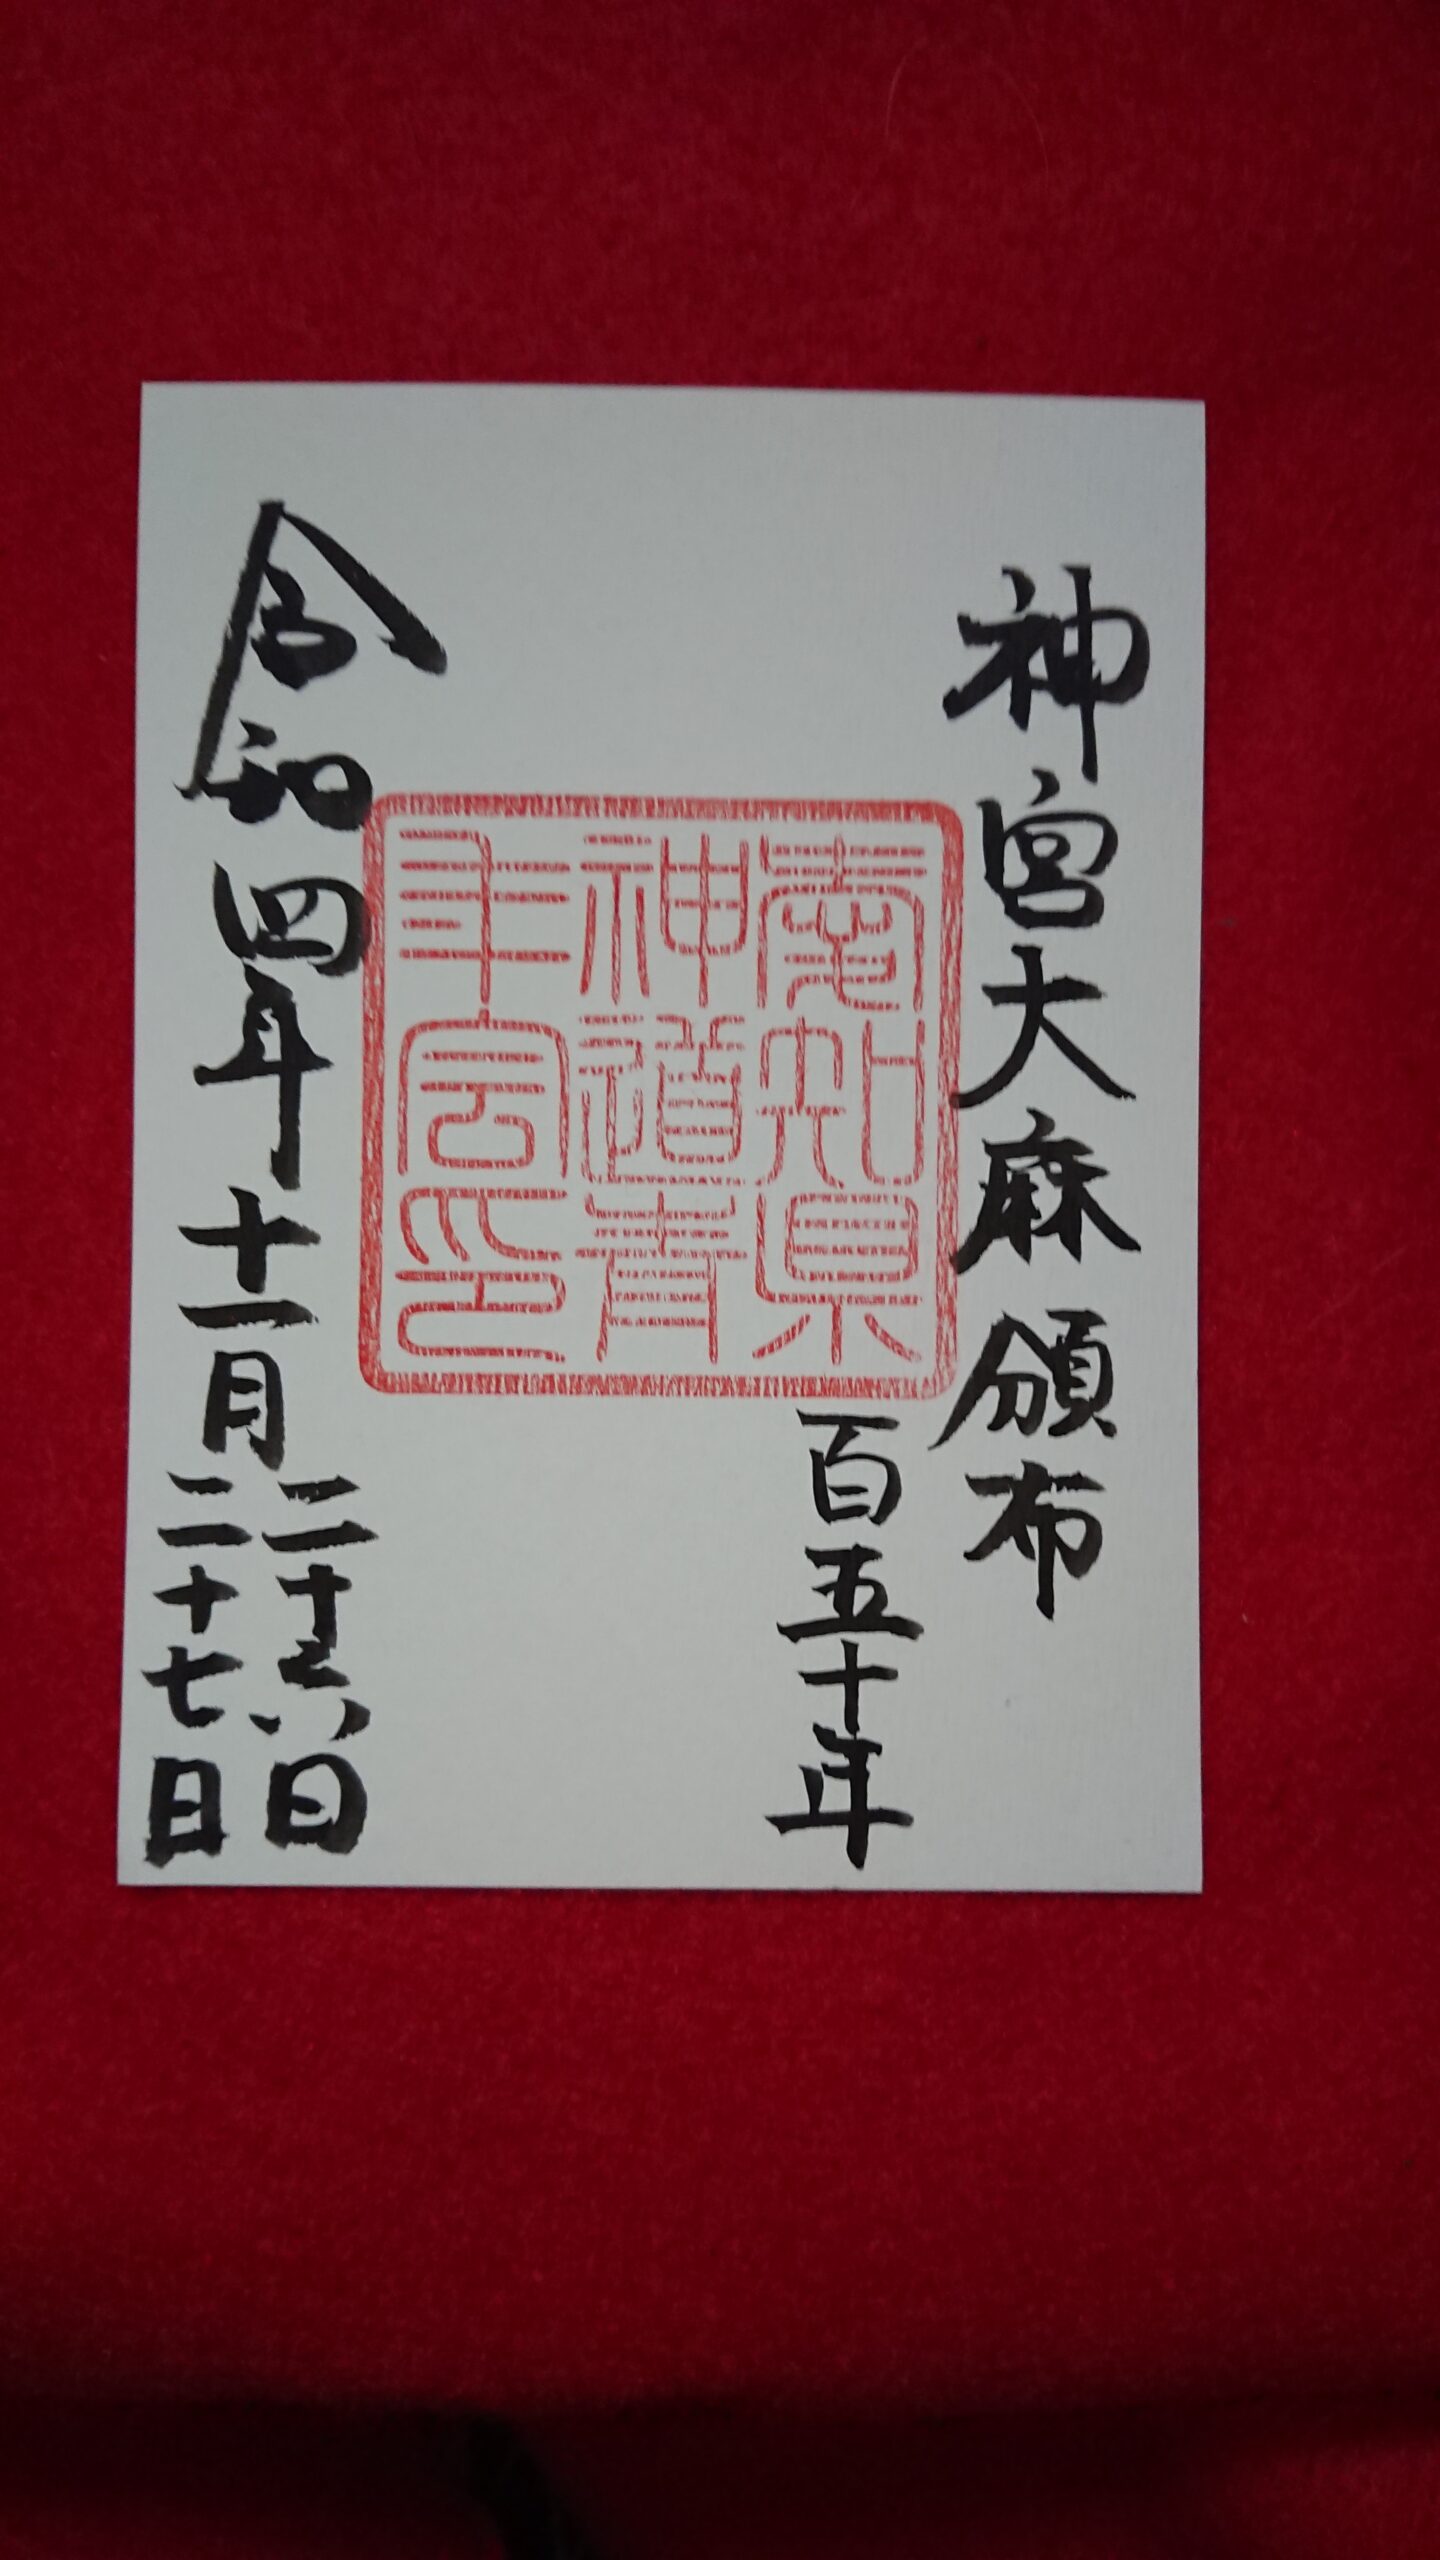 神宮大麻頒布
百五十年
愛知県
神道青
年会印
令和四年十一月
二十六日
二十七日